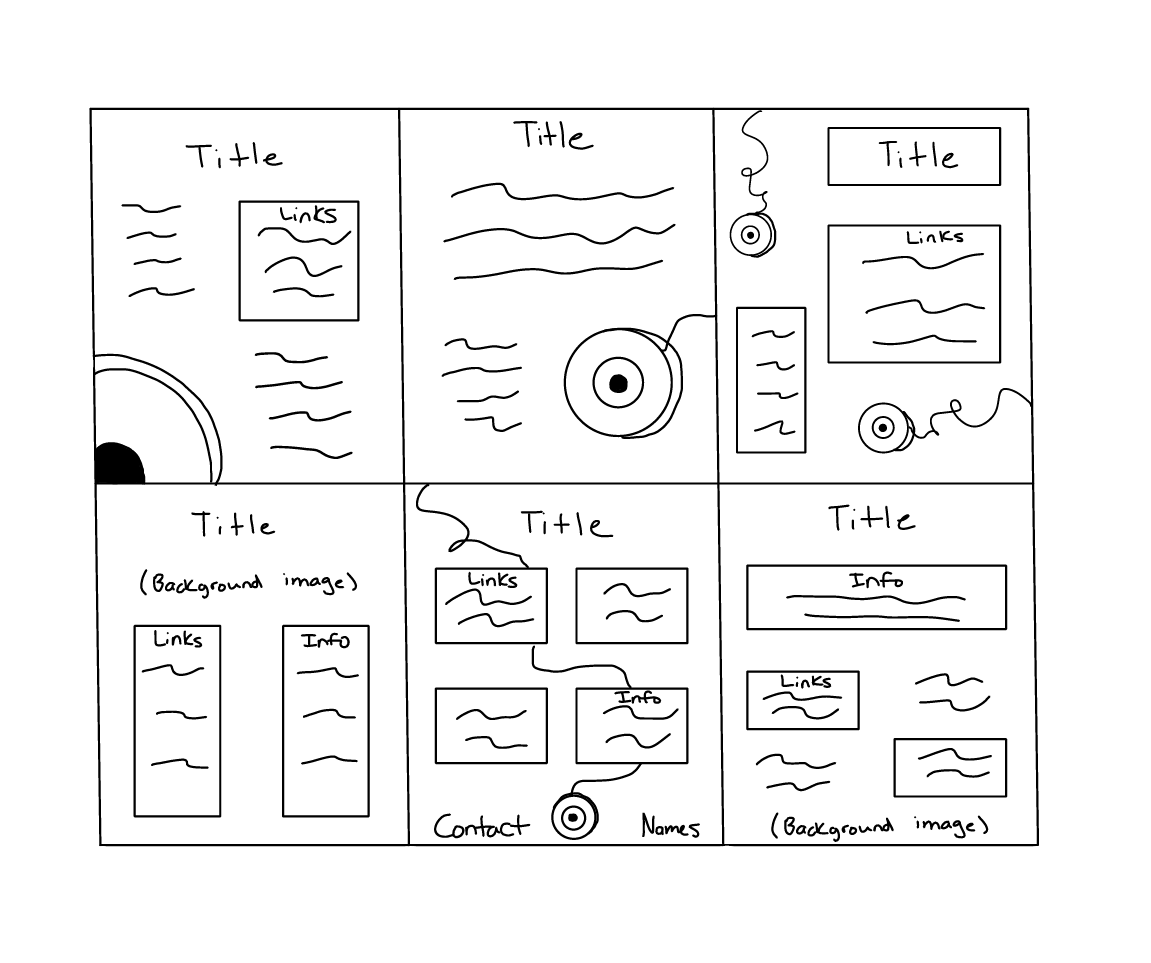 Title
Links
Title
Title
Links
Title
(Background image)
Links
Info
Title
Links
Info
Contact
Names
Title
Info
Links
(Background image)